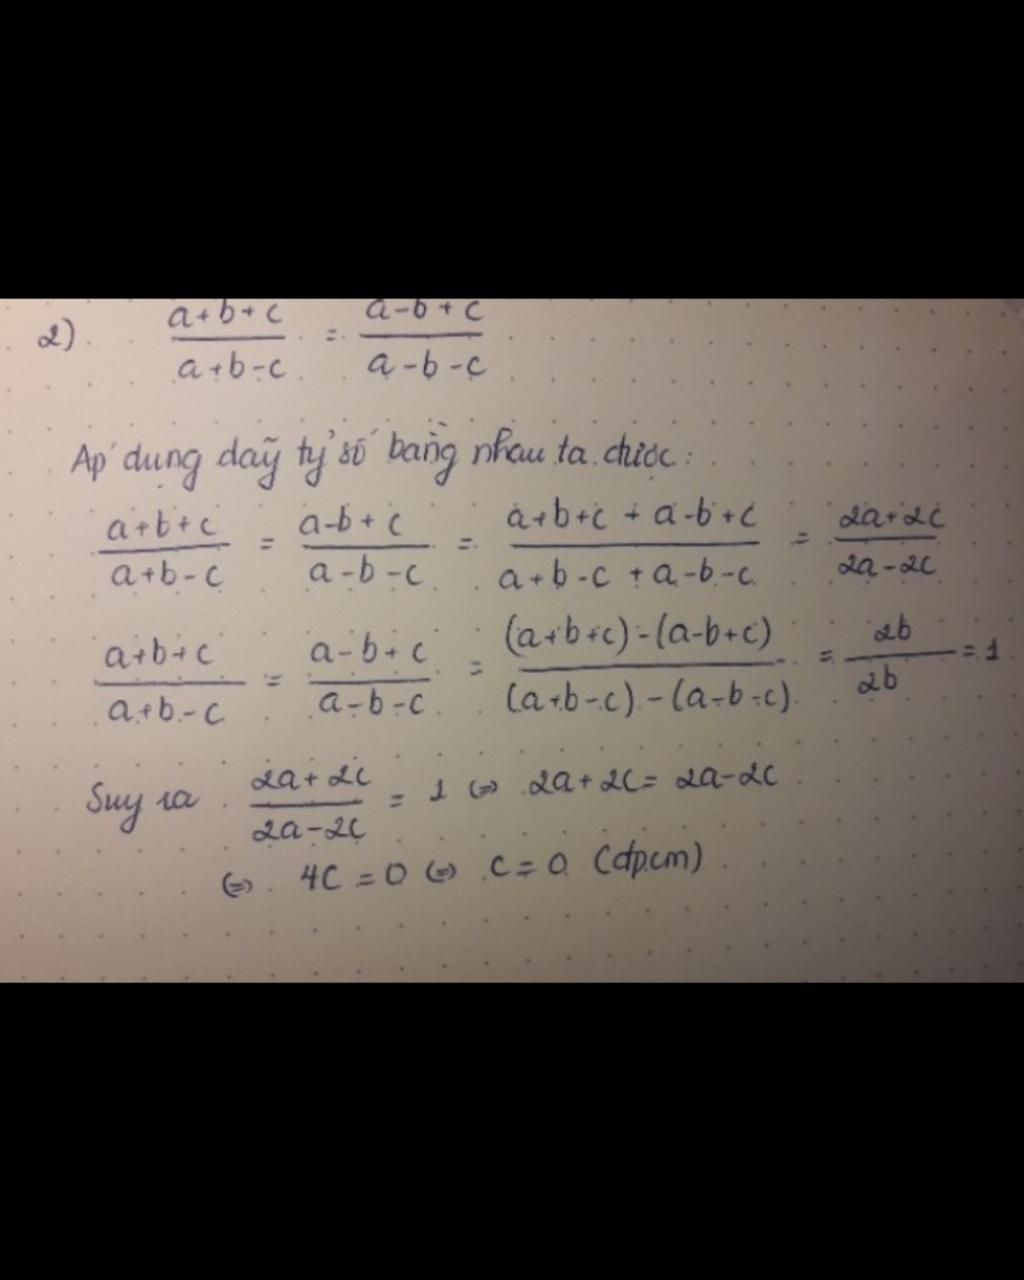 2) (a+b+c)/(a+b-c) = (a-b+c)/(a-b-c)
Áp dụng dãy tỷ số bằng nhau ta được:
(a+b+c)/(a+b-c) = (a-b+c)/(a-b-c) = (a+b+c+a-b+c)/(a+b-c+a-b-c) = (2a+2c)/(2a-2c)
(a+b+c)/(a+b-c) = (a-b+c)/(a-b-c) = ((a+b+c)-(a-b+c))/((a+b-c)-(a-b-c)) = 2b/2b = 1
Suy ra (2a+2c)/(2a-2c) = 1 (=) 2a+2c = 2a-2c
(=) 4c = 0 (=) c = 0 (đpcm)